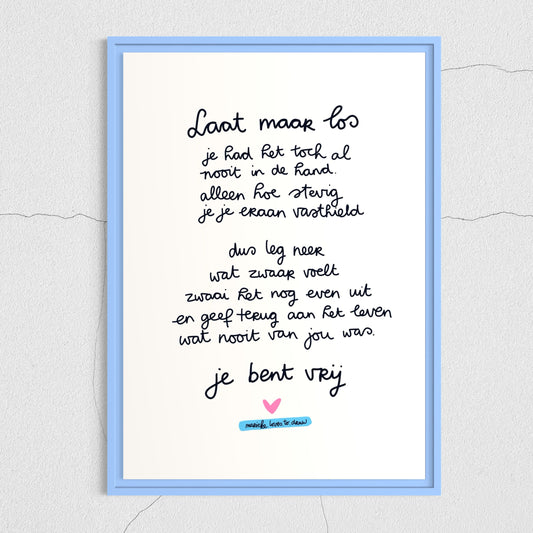 Laat maar los
je had het toch al
nooit in de hand.
alleen hoe stevig
je je eraan vasthield
dus leg neer
wat zwaar voelt
zwaai het nog even uit
en geef terug aan het leven
wat nooit van jou was.
je bent vrij
marieke loves to draw